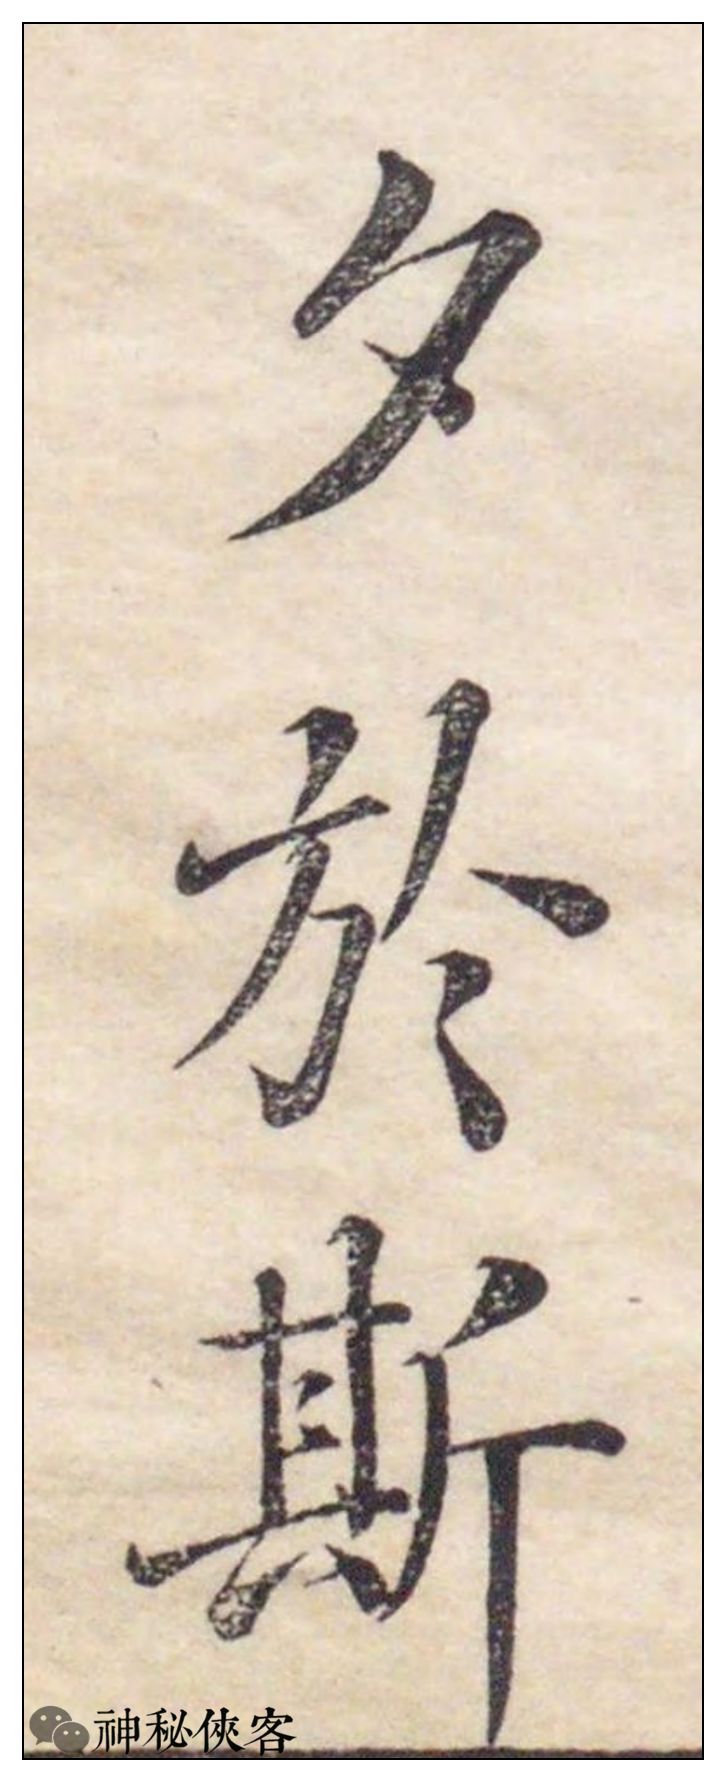 夕於斯
神秘俠客